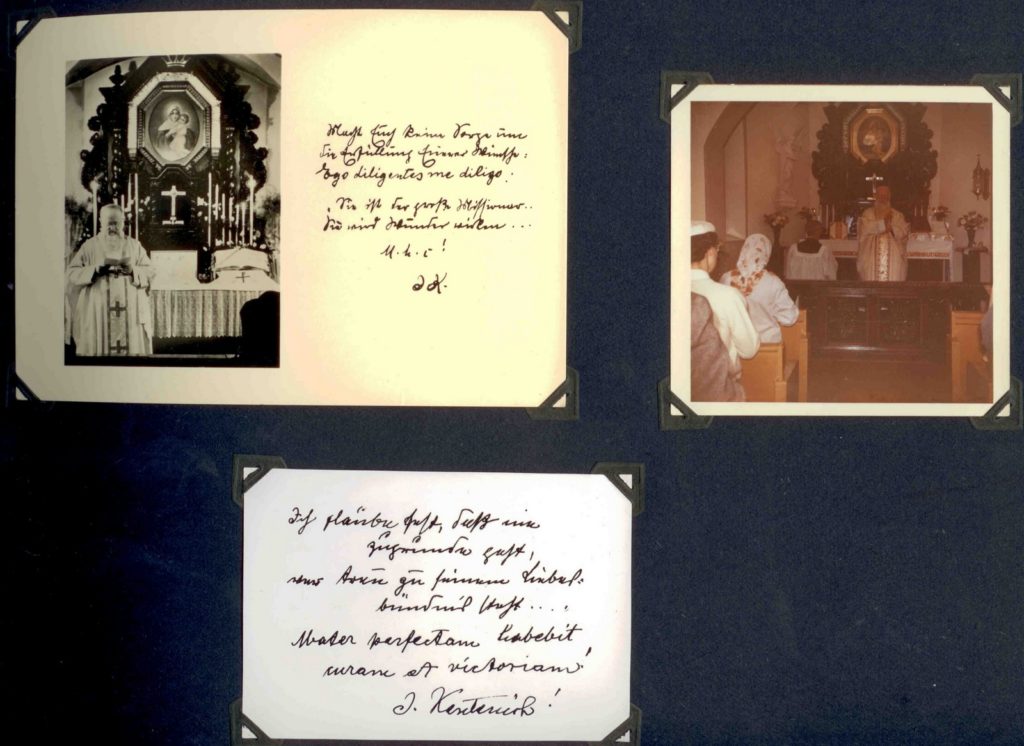 Macht Euch keine Sorge um
die Erfüllung Euerer Wünsche:
Ego diligentes me diligo.
„Sie ist der große Missionar..
Sie wird Wunder wirken ...
M. h. c!
JK.
Ich glaube fest, daß nie
zugrunde geht,
wer treu zu seinem Liebes-
bündnis steht ....
Mater perfectam habebit
curam et victoriam!
J. Kentenich!